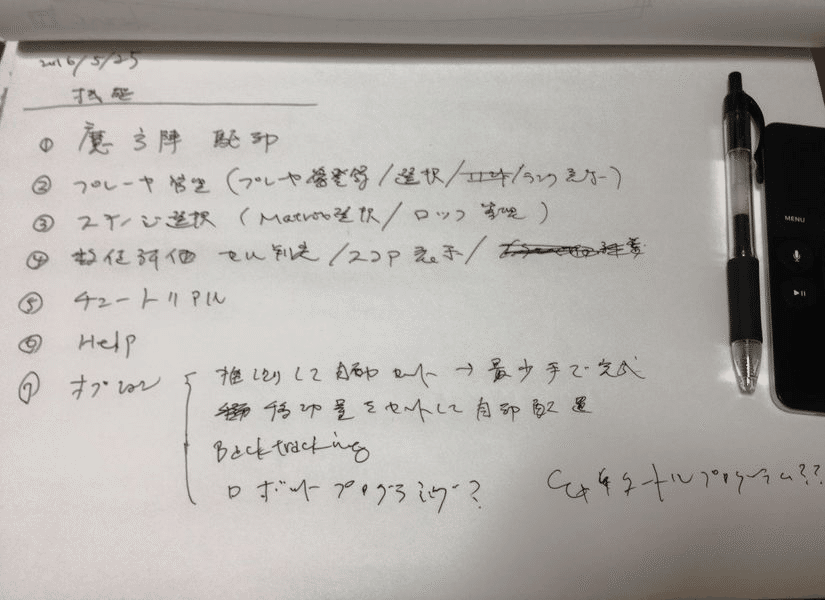 2016/5/25
機能
① 魔方陣 駆動
② プレーヤ管理 (プレーヤ登録/選択/ランク表示)
③ ステージ選択 (Matrix選択/ロック管理)
④ 数値評価 セル判定/スコア表示/
⑤ チュートリアル
⑥ Help
⑦ オプション
推測して自動セット → 最少手で完成
移動量をセットして自動配置
Backtracking
ロボットプログラミング?
タートルプログラム??
MENU